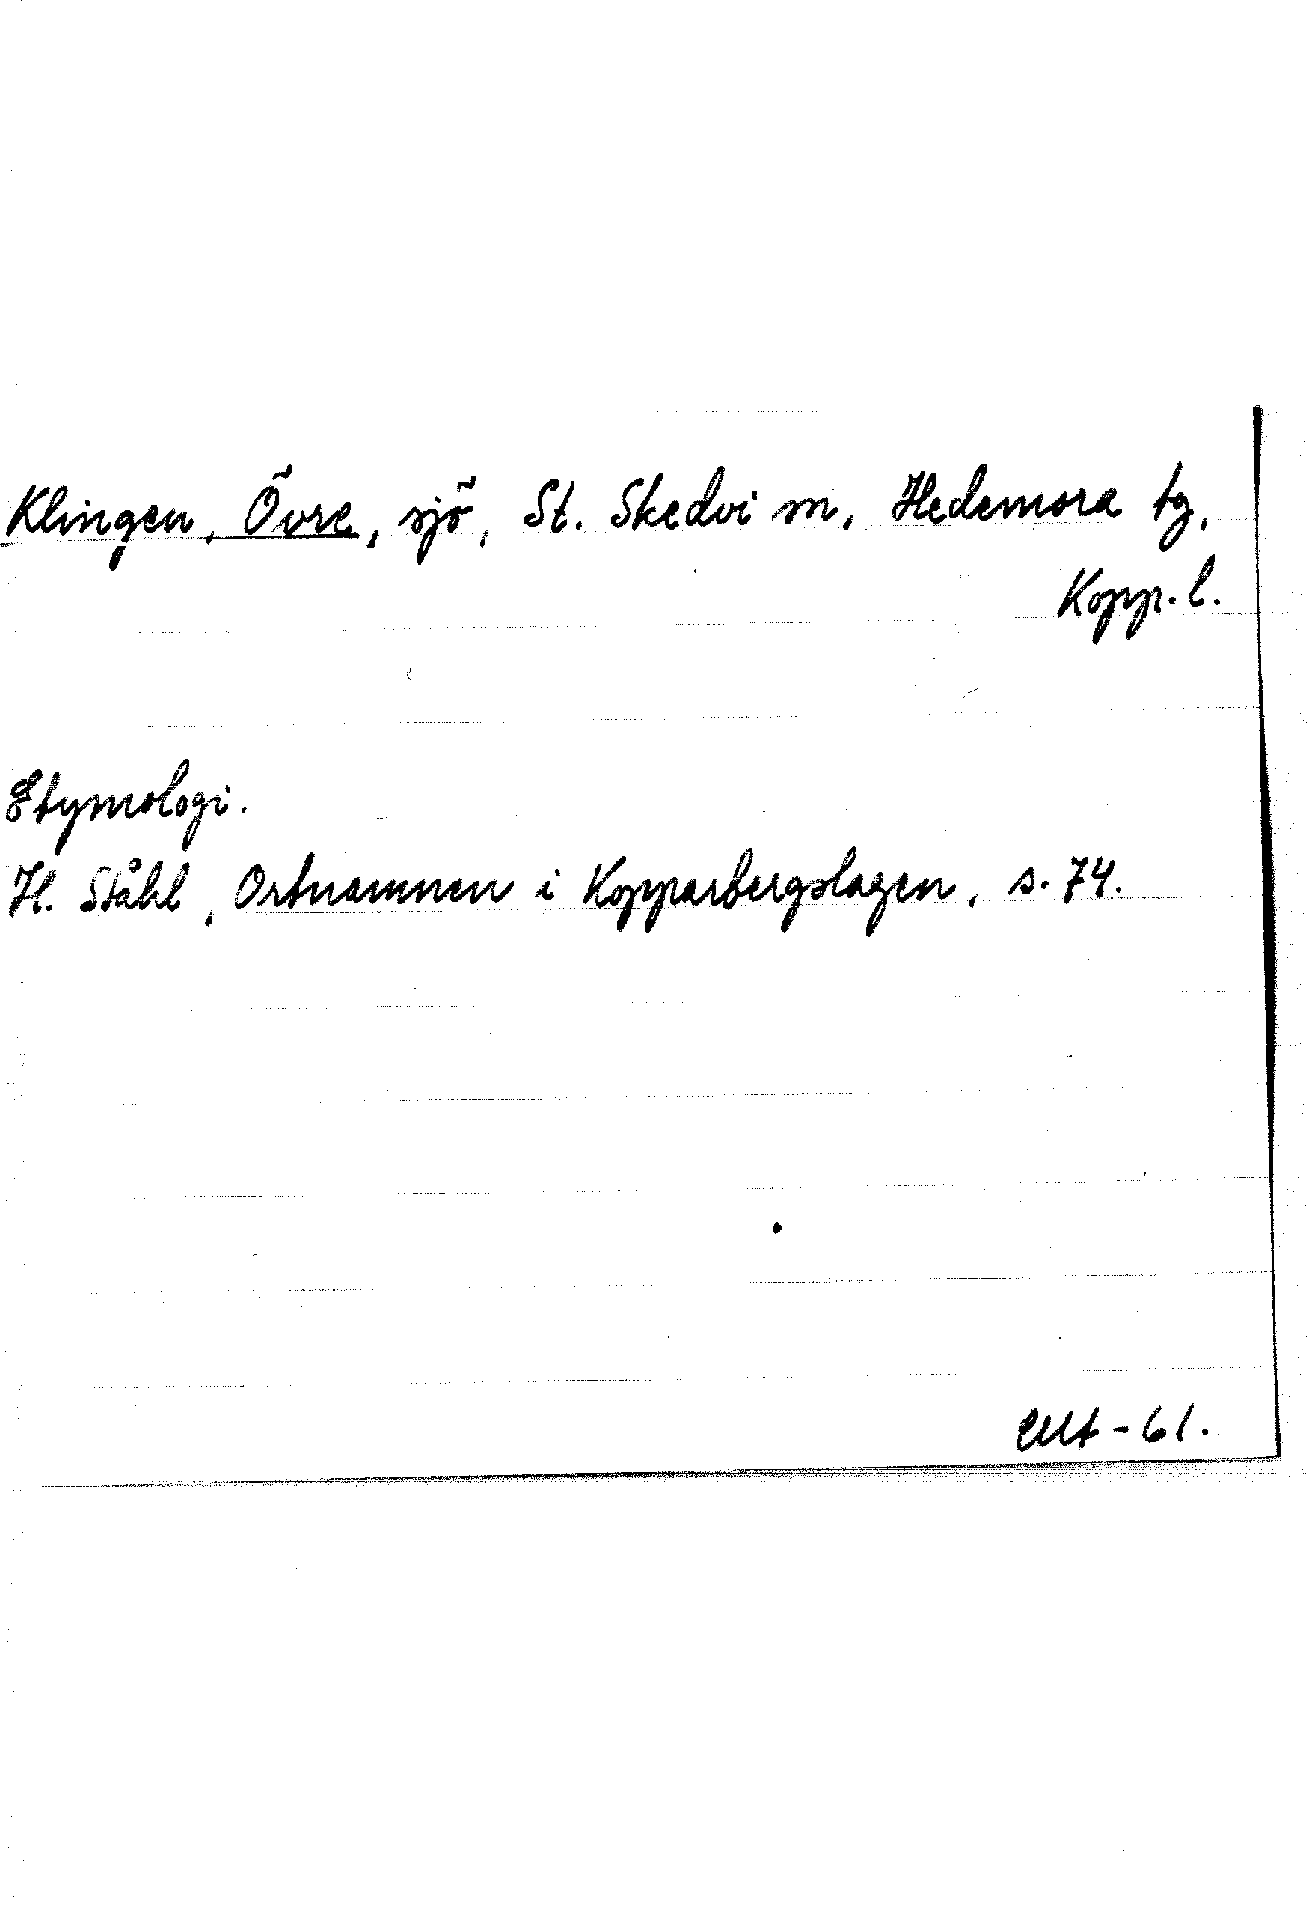 Klingen, Övre, sjö, St. Skedvi sn, Hedemora tg,
Kopp. l.
Etymologi.
H. Ståhl, Ortnamnen i Kopparbergslagen, s. 74.
-61.